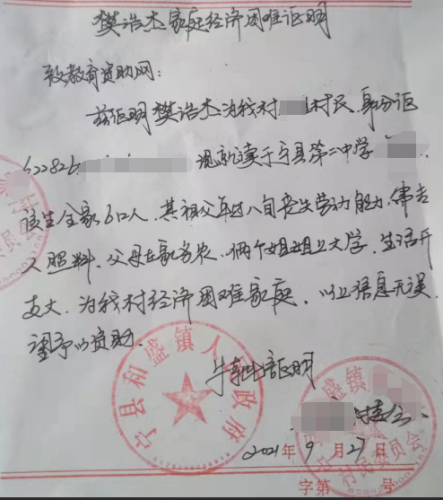 樊浩杰家庭经济困难证明
致教育资助网:
兹证明樊浩杰为我村 村民,身份证
622826 现就读于宁县第二中学
该生全家6口人,其祖父年过八旬丧失劳动能力,需专
人照料,父母在家务农,俩个姐姐上大学,生活开
支大,为我村经济困难家庭,以上信息无误,
望予以资助。
证明
村委会
2021年9月27日
字第 号
宁县和盛镇人民政府
盛镇
村民委员会